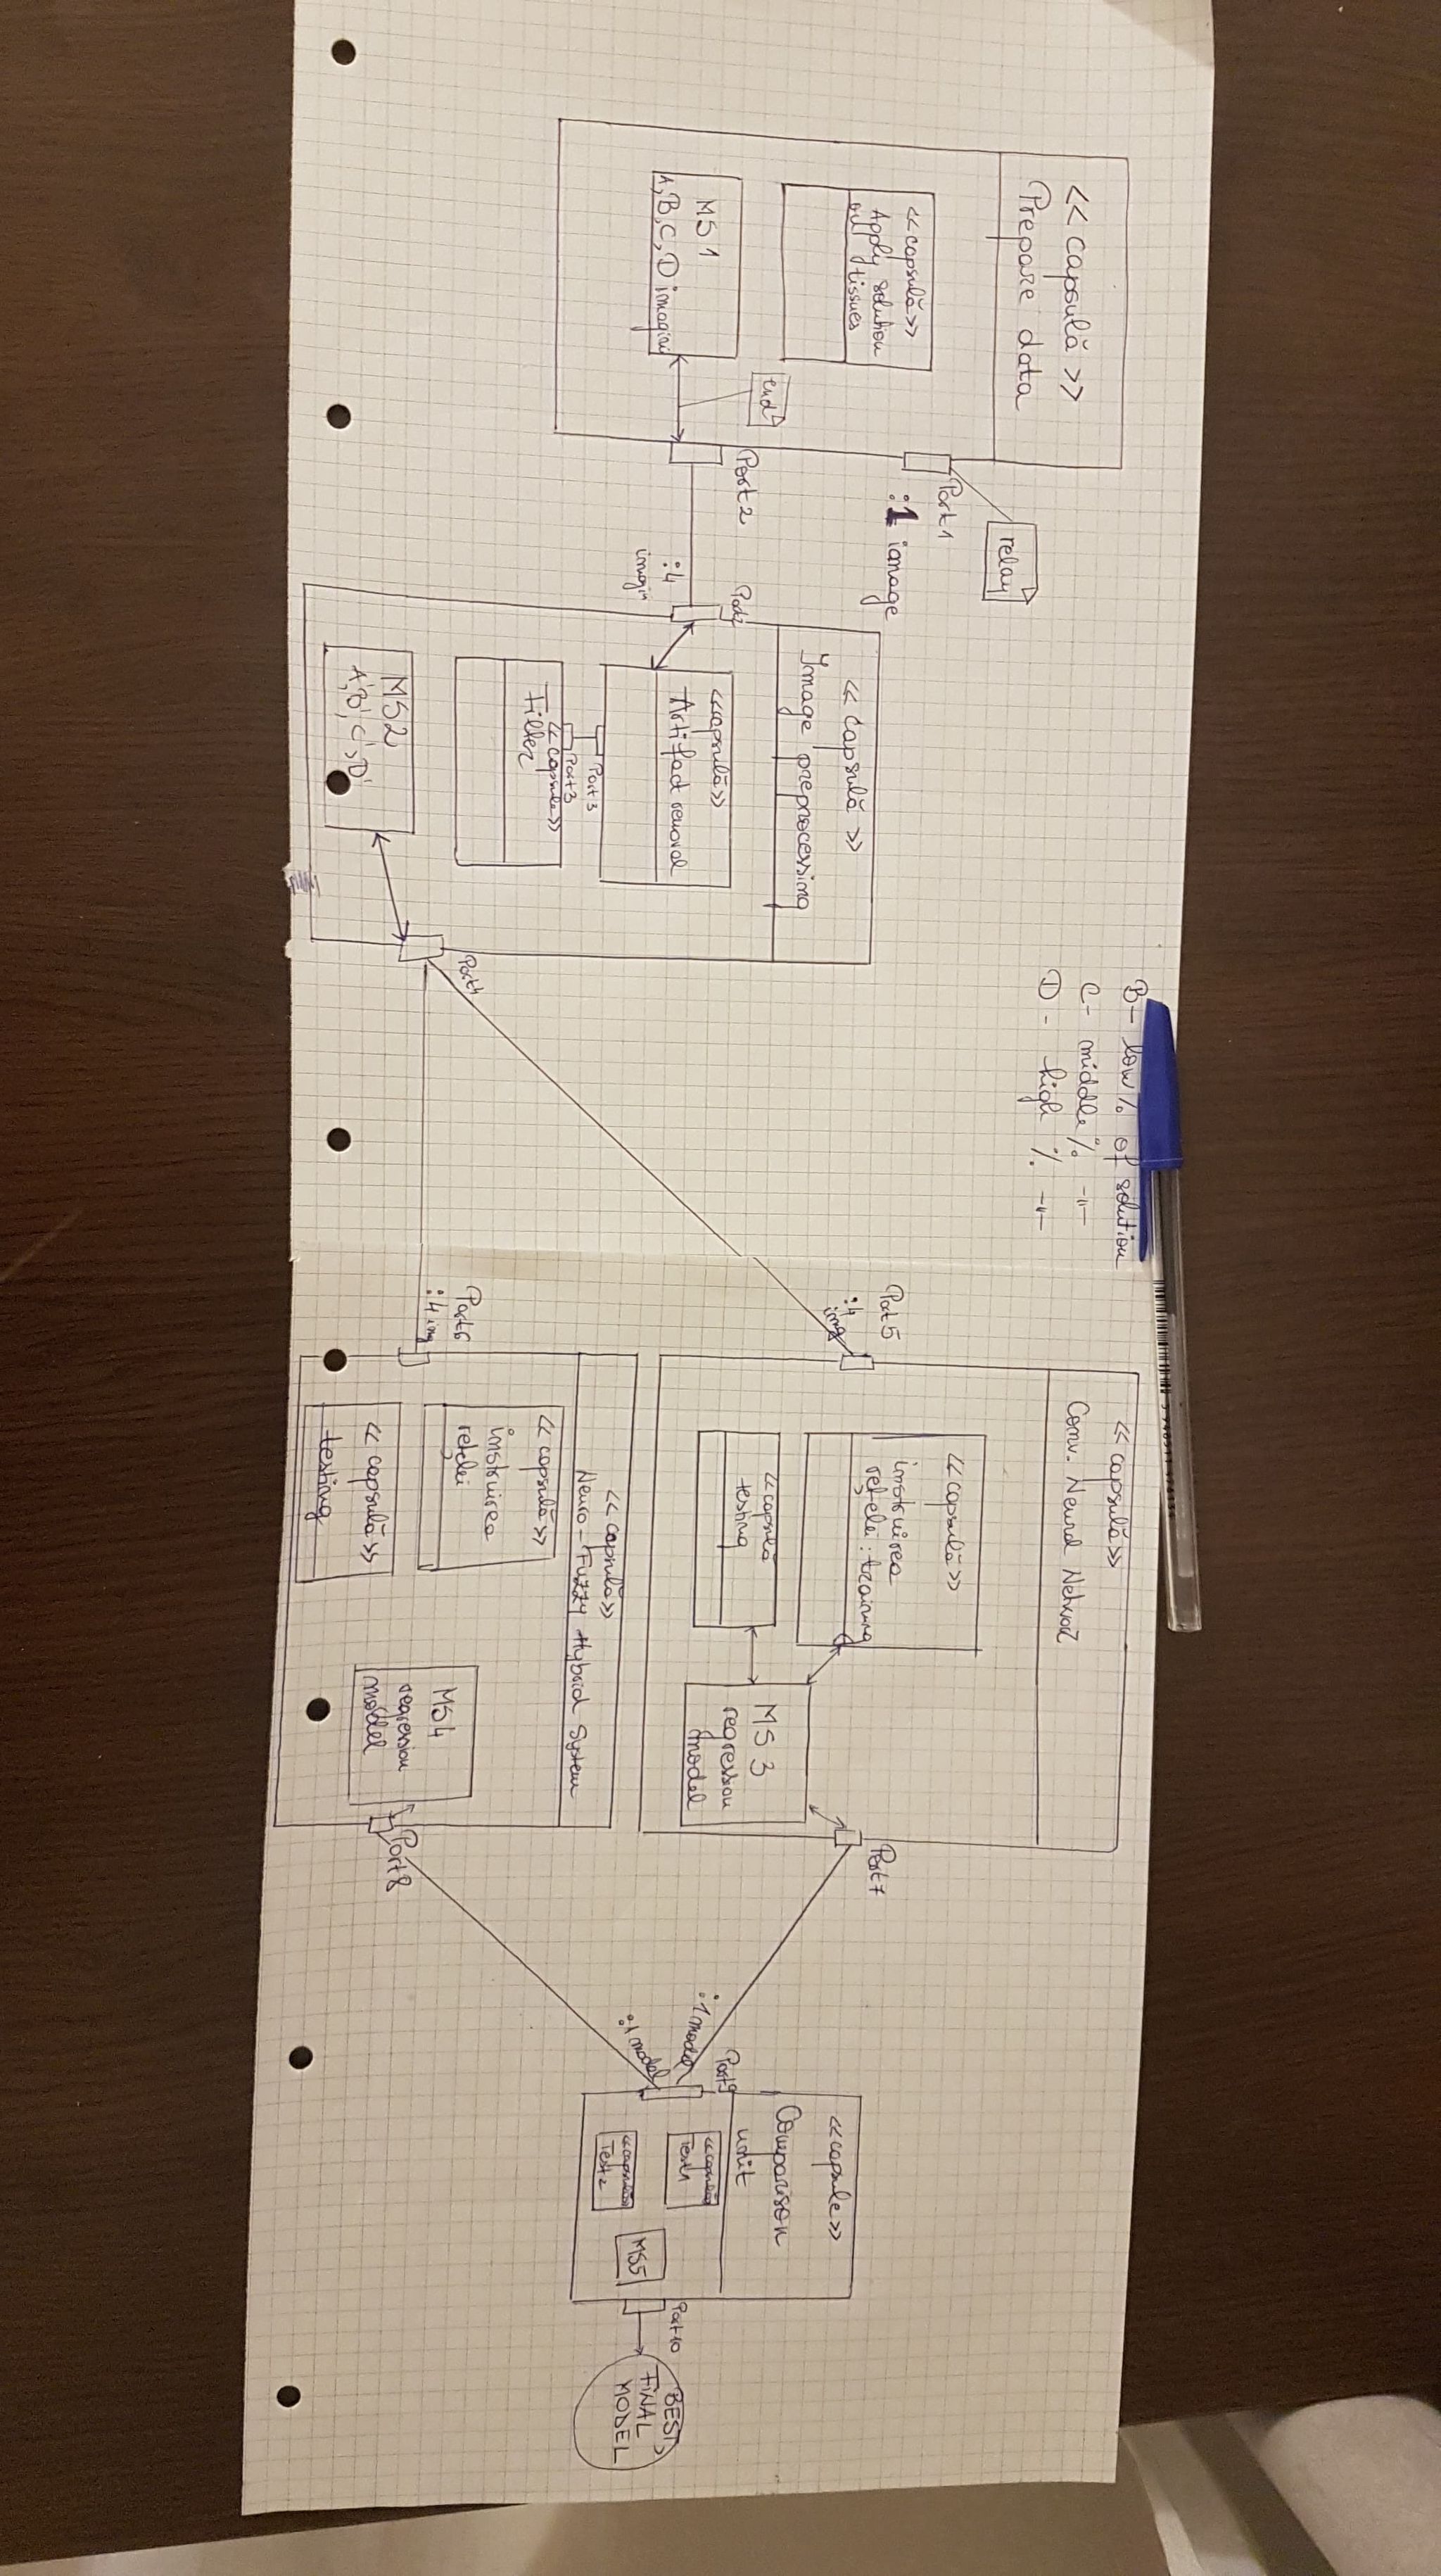 << capsulă >>
Prepare data
<< capsulă >>
Apply solution
on tissues
MS 1
A, B, C, D imagini
end
Port 2
Port 1
:1 ianage
relay
:4
imagin
<< capsulă >>
Image preprocessing
<<capsulă>>
Artifact removal
Port 3
Port 3
<<capsule>>
Filter
MS2
A', B', C', D'
Port 4
B- low % of solution
C- middle % -"-
D- high % -"-
Port 5
:4
img
Port 6
:4 img
<< capsulă >>
Conv. Neural Network
<< capsulă >>
instruirea
rețelei: training
<<capsulă
testing
MS 3
regression
model
Port 7
<< capsulă >>
Neuro-Fuzzy Hybrid System
<< capsulă >>
instruirea
rețelei
<< capsulă >>
testing
MS4
regression
model
Port 8
:1 model
:1 model
Port 9
<<capsule>>
Comparison
unit
<<capsulă
Test1
<<capsulă
Test2
MS5
Port 10
BEST
FINAL
MODEL